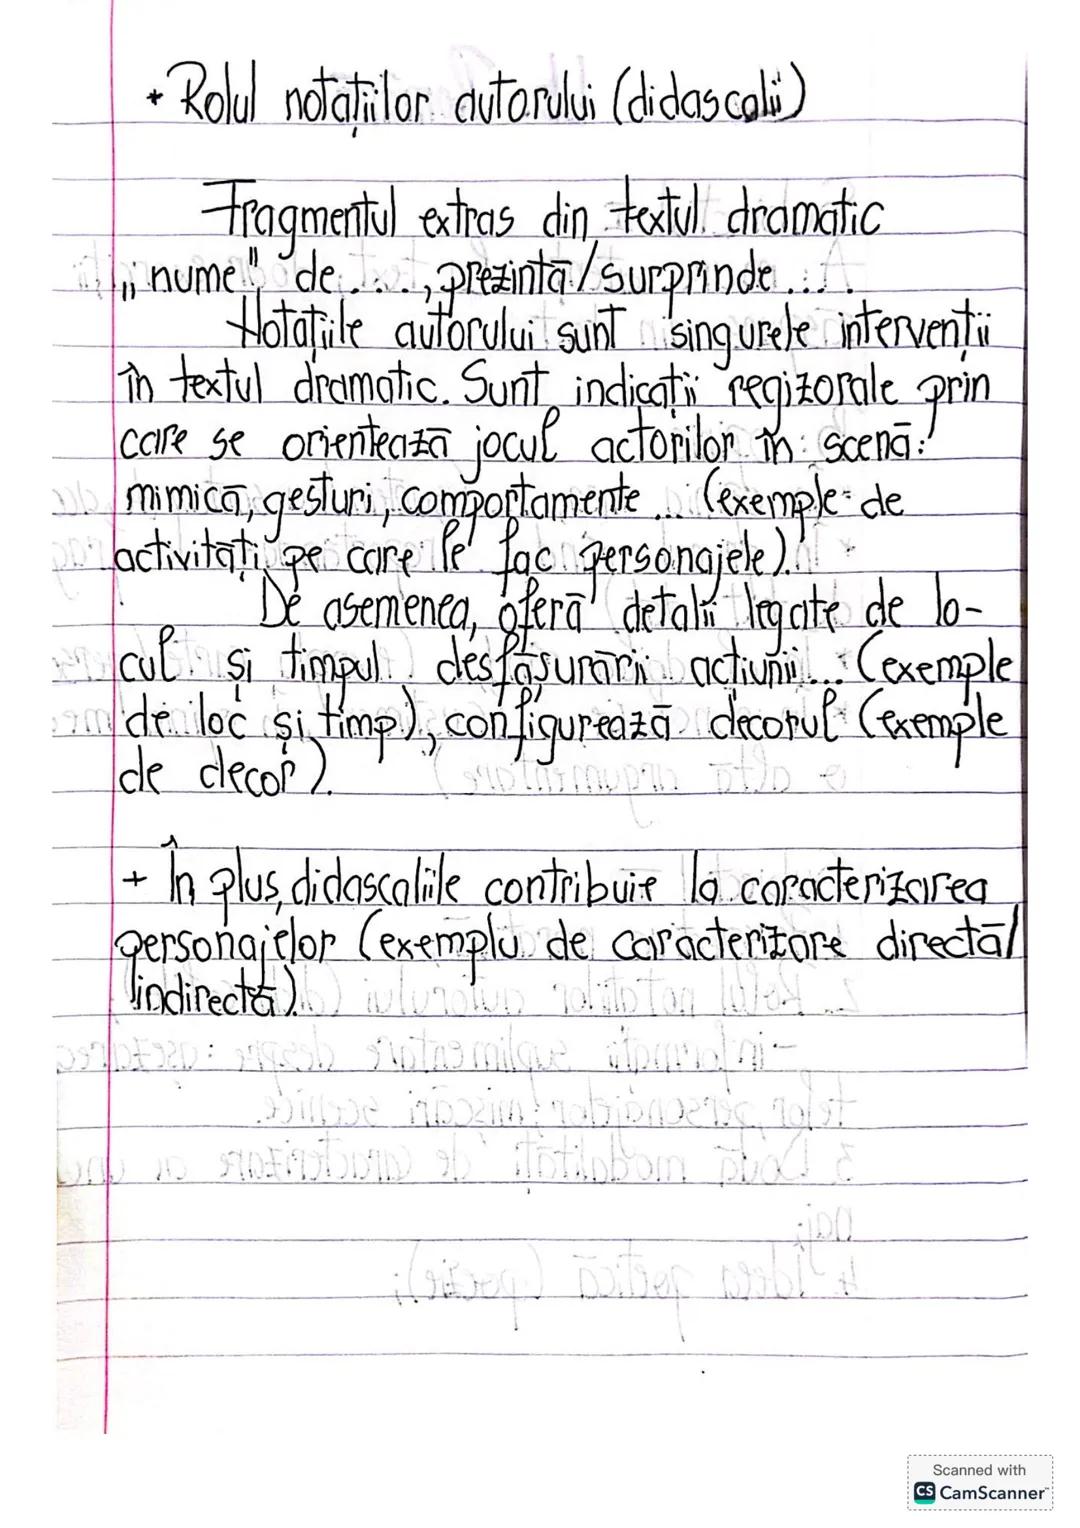 + Rolul notațiilor autorului (didascalii)
Fragmentul extras din textul dramatic
„nume" de ...., prezintă/surprinde ....
Notațiile autorului sunt singurele intervenții
în textul dramatic. Sunt indicații regizorale prin
care se orientează jocul actorilor în scenă:
mimică, gesturi, comportamente ... (exemple de
activități pe care le fac personajele).
De asemenea, oferă detalii legate de lo-
cul și timpul desfășurării acțiunii... (exemple
de loc și timp), configurează decorul (exemple
de decor).
+ În plus, didascaliile contribuie la caracterizarea
personajelor (exemplu de caracterizare directă/
indirectă).
Scanned with
CS CamScanner